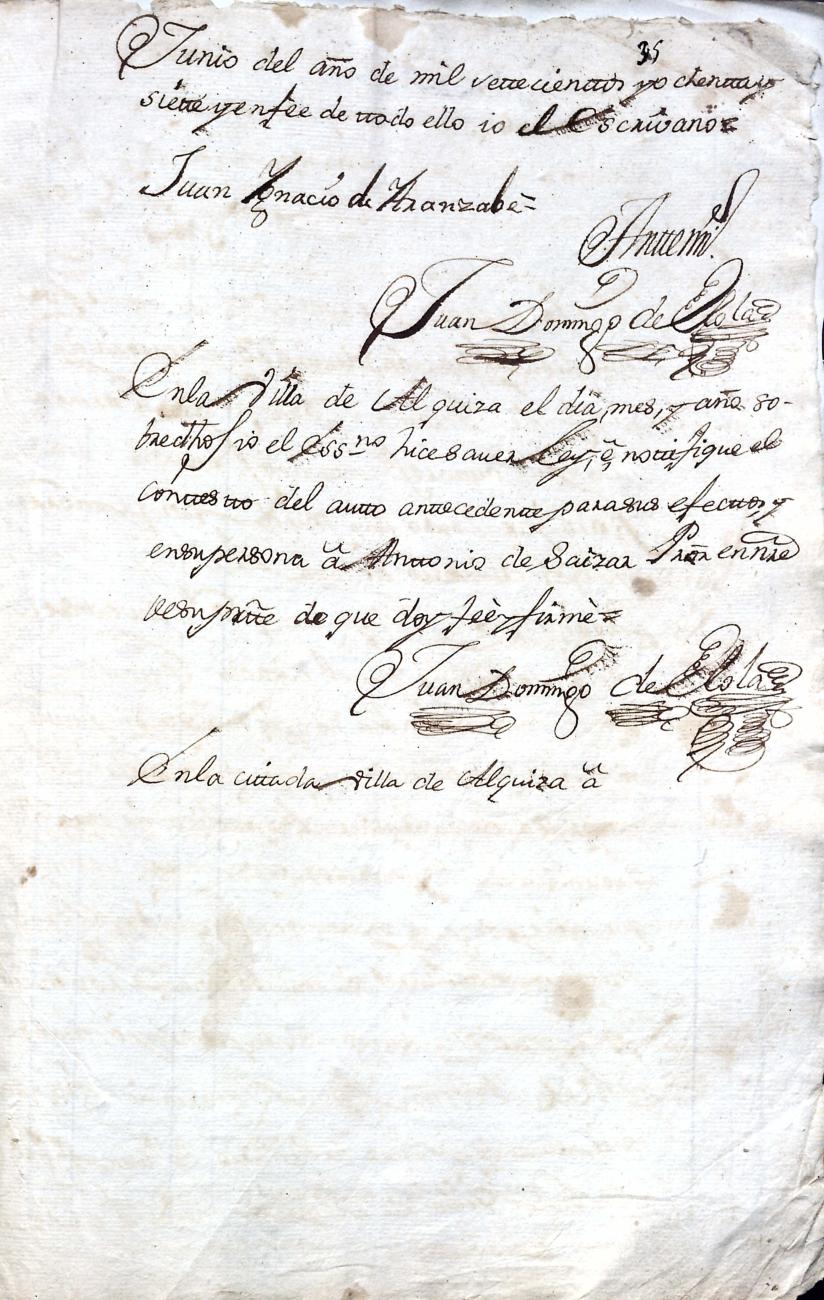 35
Junio del año de mil settecienttos y ochentta y
siette y en feè de ttodo ello io el Escrivano=
Juan Ygnacio de Aranzabe=
Anttemi
Juan Domingo de Elola
En la Villa de Alquiza el dia, mes, y año so-
bredhos io el Essno hice saver ley, è nottifique el
conttestto del autto anttecedentte para sus efecttos y
en su persona à Anttonio de Saizar Pror en nre
de su partte de que doy feè y firmè=
Juan Domingo de Elola
En la cittada villa de Alquiza à